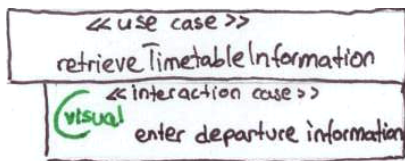 <<use case>>
retrieveTimetableInformation
<<interaction case>>
visual
enter departure information